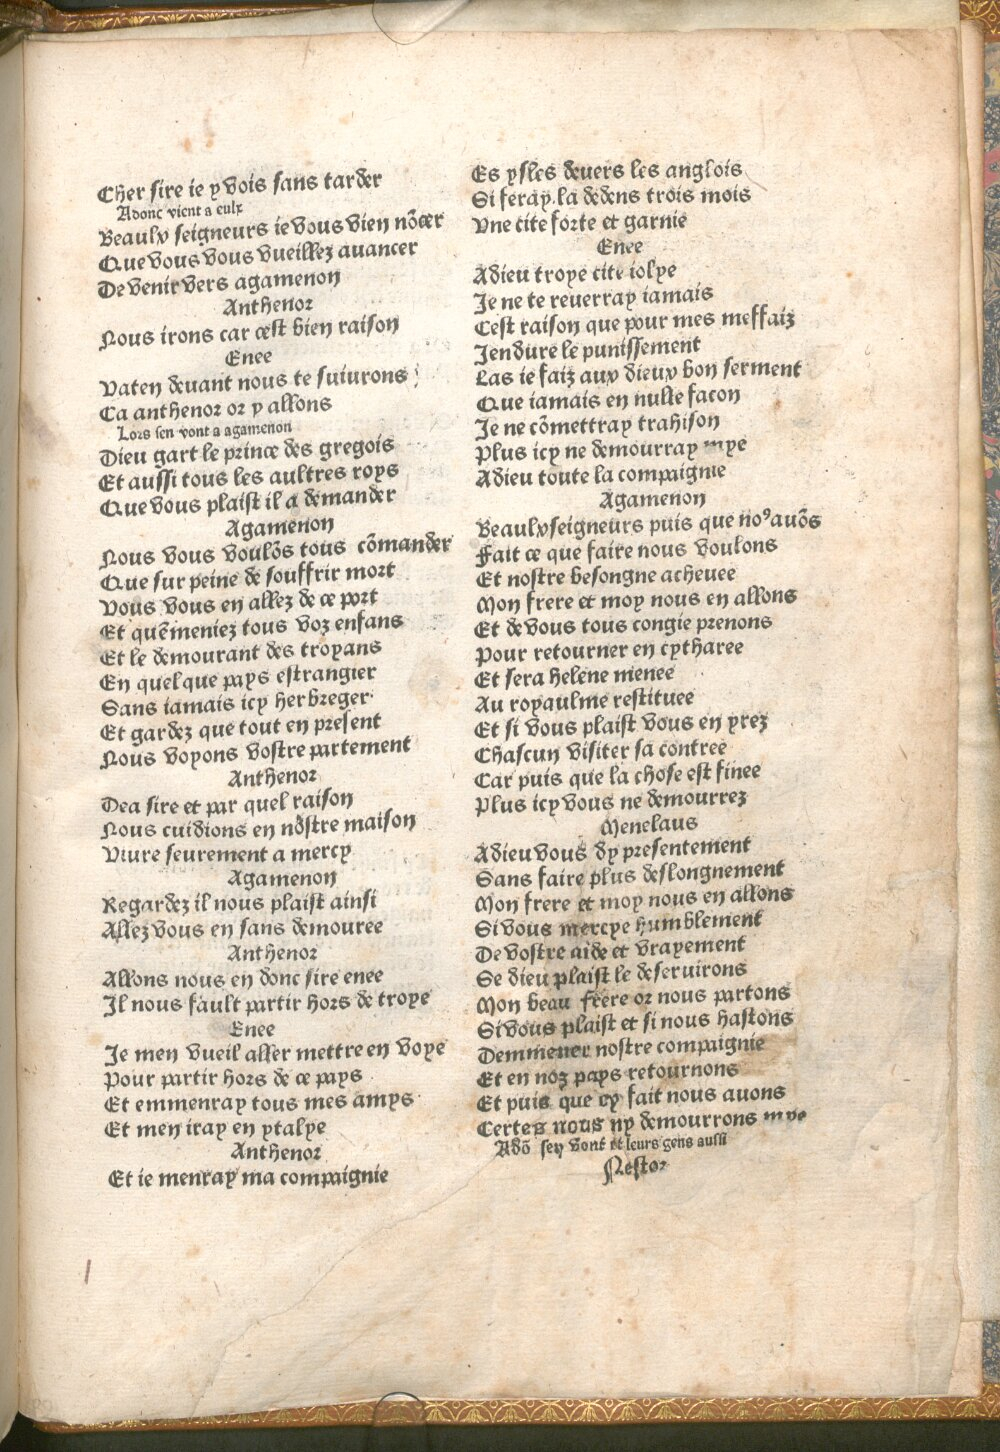 Cher sire ie y vois sans tarder
Adonc vient a eulx
Beaulx seigneurs ie vous vien nõcer
Que vous vous vueillez auancer
De venir vers agamenon
Anthenor
Nous irons car cest bien raison
Enee
Vaten deuant nous te suiurons
Ca anthenor or y allons
Lors sen vont a agamenon
Dieu gart le prince des gregois
Et aussi tous les aultres roys
Que vous plaist il a demander
Agamenon
Nous vous voulõs tous cõmander
Que sur peine de souffrir mort
Vous vous en allez de ce port
Et quẽmeniez tous voz enfans
Et le demourant des troyans
En quelque pays estrangier
Sans iamais icy herbreger
Et gardez que tout en present
Nous voyons vostre partement
Anthenor
Dea sire et par quel raison
Nous cuidions en nostre maison
Viure seurement a mercy
Agamenon
Regardez il nous plaist ainsi
Allez vous en sans demouree
Anthenor
Allons nous en donc sire enee
Il nous fault partir hors de troye
Enee
Je men vueil aller mettre en voye
Pour partir hors de ce pays
Et emmenray tous mes amys
Et men iray en ytalye
Anthenor
Et ie menray ma compaignie
Es ysles deuers les anglois
Si feray la dedens trois mois
Vne cite forte et garnie
Enee
Adieu troye cite iolye
Je ne te reuerray iamais
Cest raison que pour mes meffaiz
Jendure le punissement
Las ie faiz aux dieux bon serment
Que iamais en nulle facon
Je ne cõmettray trahison
Plus icy ne demourray mye
Adieu toute la compaignie
Agamenon
Beaulx seigneurs puis que noꝰ auõs
Fait ce que faire nous voulons
Et nostre besongne acheuee
Mon frere et moy nous en allons
Et de vous tous congie prenons
Pour retourner en cytharee
Et sera helene menee
Au royaulme restituee
Et si vous plaist vous en yrez
Chascun visiter sa contree
Car puis que la chose est finee
Plus icy vous ne demourrez
Menelaus
Adieu vous dy presentement
Sans faire plus deslongnement
Mon frere et moy nous en allons
Si vous mercye humblement
De vostre aide et vrayement
Se dieu plaist le deseruirons
Mon beau frere or nous partons
Si vous plaist et si nous hastons
Demmener nostre compaignie
Et en noz pays retournons
Et puis que cy fait nous auons
Certes nous ny demourrons mye
Adõ sen vont et leurs gens aussi
Nestor